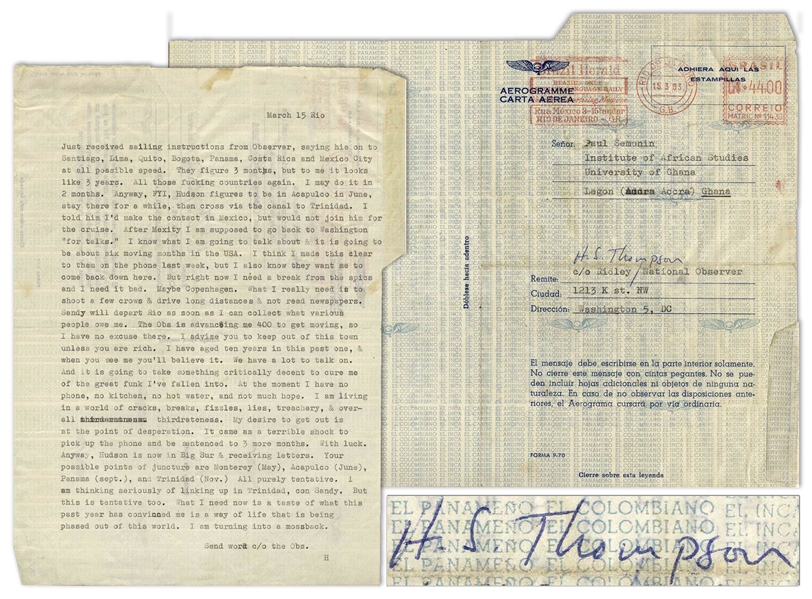 March 15 Rio
Just received sailing instructions from Observer, saying hie on to
Santiago, Lima, Quito, Bogota, Panama, Costa Rica and Mexico City
at all possible speed. They figure 3 months, but to me it looks
like 3 years. All those fucking countries again. I may do it in
2 months. Anyway, FYI, Hudson figures to be in Acapulco in June,
stay there for a while, then cross via the canal to Trinidad. I
told him I'd make the contact in Mexico, but would not join him for
the cruise. After Mexity I am supposed to go back to Washington
"for talks." I know what I am going to talk about & it is going to
be about six moving months in the USA. I think I made this clear
to them on the phone last week, but I also know they want me to
come back down here. But right now I need a break from the spics
and I need it bad. Maybe Copenhagen. What I really need is to
shoot a few crows & drive long distances & not read newspapers.
Sendy will depart Rio as soon as I can collect what various
people owe me. The Obs is advancing me 400 to get moving, so
I have no excuse there. I advise you to keep out of this town
unless you are rich. I have aged ten years in this past one, &
when you see me you'll believe it. We have a lot to talk on.
And it is going to take something critically decent to cure me
of the great funk I've fallen into. At the moment I have no
phone, no kitchen, no hot water, and not much hope. I am living
in a world of cracks, breaks, fizzles, lies, treachery, & over-
all thirdrateness. My desire to get out is
at the point of desperation. It came as a terrible shock to
pick up the phone and be sentenced to 3 more months. With luck.
Anyway, Hudson is now in Big Sur & receiving letters. Your
possible points of juncture are Monterey (May), Acapulco (June),
Panama (sept.), and Trinidad (Nov.) All purely tentative. I
am thinking seriously of linking up in Trinidad, con Sandy. But
this is tentative too. What I need now is a taste of what this
past year has convinned me is a way of life that is being
phased out of this world. I am turning into a mossback.
Send word c/o the Obs.
H
AEROGRAMME
CARTA AEREA
Brazil Herald
Rua México 3
RIO DE JANEIRO - GB
15 3 63
G.B.
ADHIERA AQUI LAS
ESTAMPILLAS
BRASIL
44.00
CORREIO
Señor: Paul Semonin
Institute of African Studies
University of Ghana
Legon (Accra) Ghana
Dóblese hacia adentro
H.S. Thompson
Remite: c/o Ridley, National Observer
Ciudad: 1213 K st. NW
Dirección: Washington 5, DC
El mensaje debe escribirse en la parte interior solamente.
No cierre este mensaje con cintas pegantes. No se pue-
den incluir hojas adicionales ni objetos de ninguna na-
turaleza. En caso de no observar las disposiciones ante-
riores, el Aerograma cursará por vía ordinaria.
FORMA 9-70
Cierre sobre esta leyenda
EL PANAMEÑO EL COLOMBIANO EL INCA
H.S. Thompson
EL PANAMEÑO